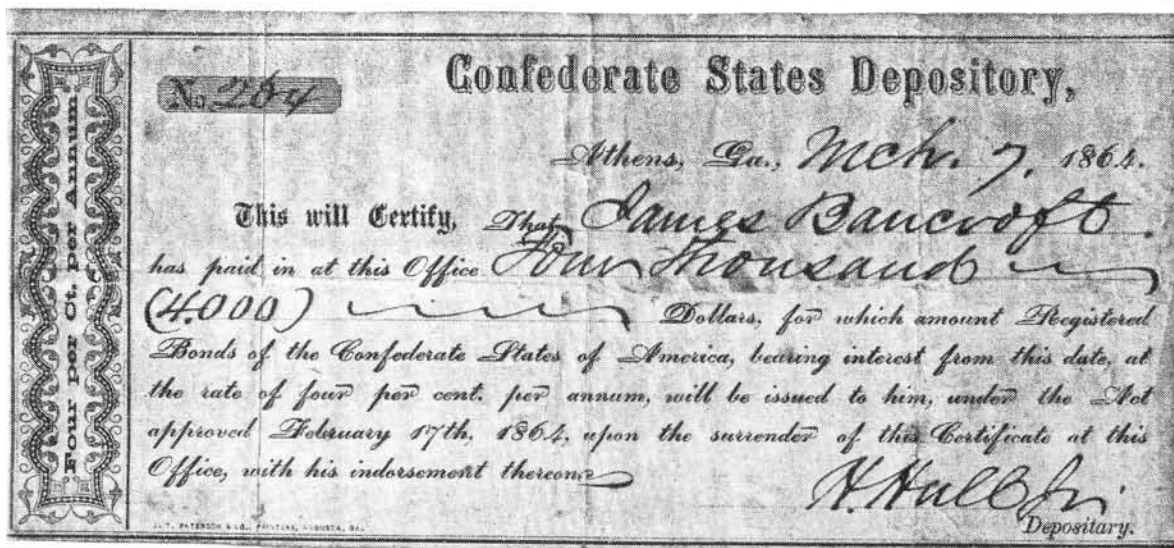 Four per Ct. per Annum
No. 264
Confederate States Depository,
Athens, Ga., Mch. 7, 1864.
This will Certify, That James Bancroft.
has paid in at this Office Four Thousand
(4.000) Dollars, for which amount Registered
Bonds of the Confederate States of America, bearing interest from this date, at
the rate of four per cent. per annum, will be issued to him, under the Act
approved February 17th, 1864, upon the surrender of this Certificate at this
Office, with his indorsement thereon.
H. Hull Jr.
Depositary.
J. T. PATERSON & CO., PRINTERS, AUGUSTA, GA.